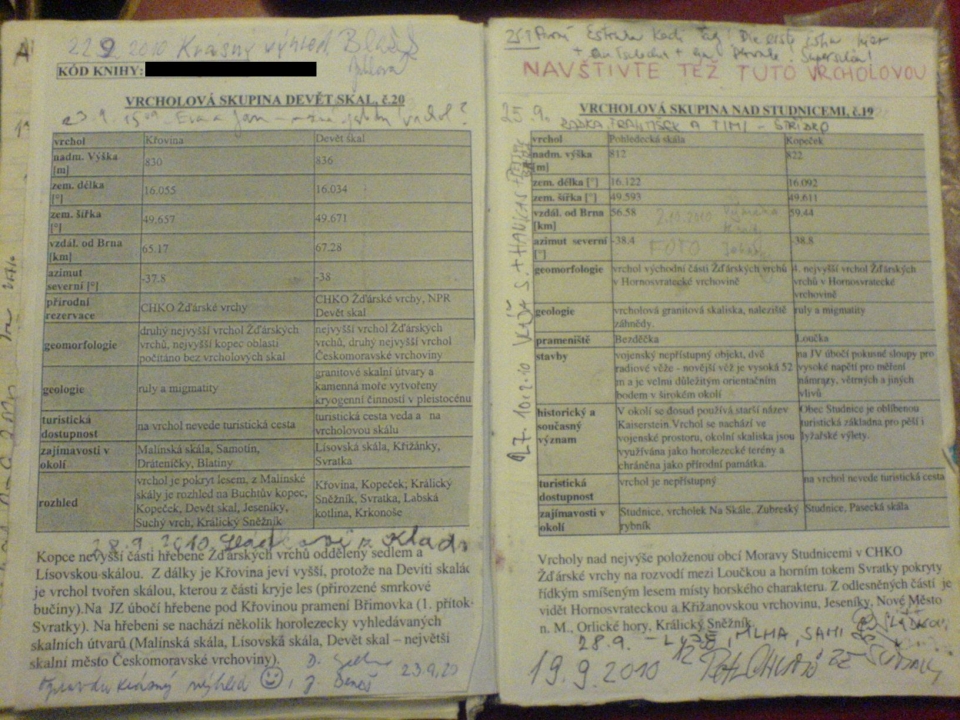 22.9.2010 Krásný výhled
KÓD KNIHY:
VRCHOLOVÁ SKUPINA DEVĚT SKAL, č.20
vrchol Křovina Devět skal
nadm. Výška [m] 830 836
zem. délka [°] 16.055 16.034
zem. šířka [°] 49,657 49,671
vzdál. od Brna [km] 65.17 67.28
azimut severní [°] -37.8 -38
přírodní rezervace CHKO Žďárské vrchy CHKO Žďárské vrchy, NPR Devět skal
geomorfologie druhý nejvyšší vrchol Žďárských vrchů, nejvyšší kopec oblasti počítáno bez vrcholových skal nejvyšší vrchol Žďárských vrchů, druhý nejvyšší vrchol Českomoravské vrchoviny
geologie ruly a migmatity granitové skalní útvary a kamenná moře vytvořeny kryogenní činností v pleistocénu
turistická dostupnost na vrchol nevede turistická cesta turistická cesta veda a na vrcholovou skálu
zajímavosti v okolí Malínská skála, Samotín, Dráteničky, Blatiny Lisovská skála, Křižánky, Svratka
rozhled vrchol je pokryt lesem, z Malínské skály je rozhled na Buchtův kopec, Kopeček, Devět skal, Jeseníky, Suchý vrch, Králický Sněžník Křovina, Kopeček, Králický Sněžník, Svratka, Labská kotlina, Krkonoše
28.9.2010
Kopce nevyšší části hřebene Žďárských vrchů odděleny sedlem a
Lisovskou skálou. Z dálky je Křovina jeví vyšší, protože na Devíti skalác
je vrchol tvořen skálou, kterou z části kryje les (přirozené smrkové
bučiny).Na JZ úbočí hřebene pod Křovinou pramení Břimovka (1. přítok
Svratky). Na hřebeni se nachází několik horolezecky vyhledávaných
skalních útvarů (Malínská skála, Lisovská skála, Devět skal – největší
skalní město Českomoravské vrchoviny).
23.9.20
Opravdu krásný výhled ☺, J. Beneš
NAVŠTIVTE TEŽ TUTO VRCHOLOVOU
VRCHOLOVÁ SKUPINA NAD STUDNICEMI, č.19
25.9.
FRANTIŠEK A TIMI - STŘÍDKO
vrchol Pohledecká skála Kopeček
nadm. výška [m] 812 822
zem. délka [°] 16.122 16.092
zem. šířka [°] 49.593 49.611
vzdál. od Brna [km] 56.58 59.44
azimut severní [°] -38.4 -38.8
FOTO
geomorfologie vrchol východní části Žďárských vrchů v Hornosvratecké vrchovině 4. nejvyšší vrchol Žďárských vrchů v Hornosvratecké vrchovině
geologie vrcholová granitová skaliska, naleziště záhnědy. ruly a migmatity
prameniště Bezděčka Loučka
stavby vojenský nepřístupný objekt, dvě radiové věže - novější věž je vysoká 52 m a je velmi důležitým orientačním bodem v širokém okolí na JV úbočí pokusné sloupy pro vysoké napětí pro měření námrazy, větrných a jiných vlivů
historický a současný význam V okolí se dosud používá starší název Kaiserstein.Vrchol se nachází ve vojenské prostoru, okolní skaliska jsou využívána jako horolezecké terény a chráněna jako přírodní památka. Obec Studnice je oblíbenou turistická základna pro pěší i lyžařské výlety.
turistická dostupnost vrchol je nepřístupný na vrchol nevede turistická cesta
zajímavosti v okolí Studnice, vrcholek Na Skále, Zubřeský rybník Studnice, Pasecká skála
Vrcholy nad nejvýše položenou obcí Moravy Studnicemi v CHKO
Žďárské vrchy na rozvodí mezi Loučkou a horním tokem Svratky pokryty
řídkým smíšeným lesem místy horského charakteru. Z odlesněných částí je
vidět Hornosvrateckou a Křižanovskou vrchovinu, Jeseníky, Nové Město
n. M., Orlické hory, Králický Sněžník.
28.9. - MLHA, SAMI
19.9.2010